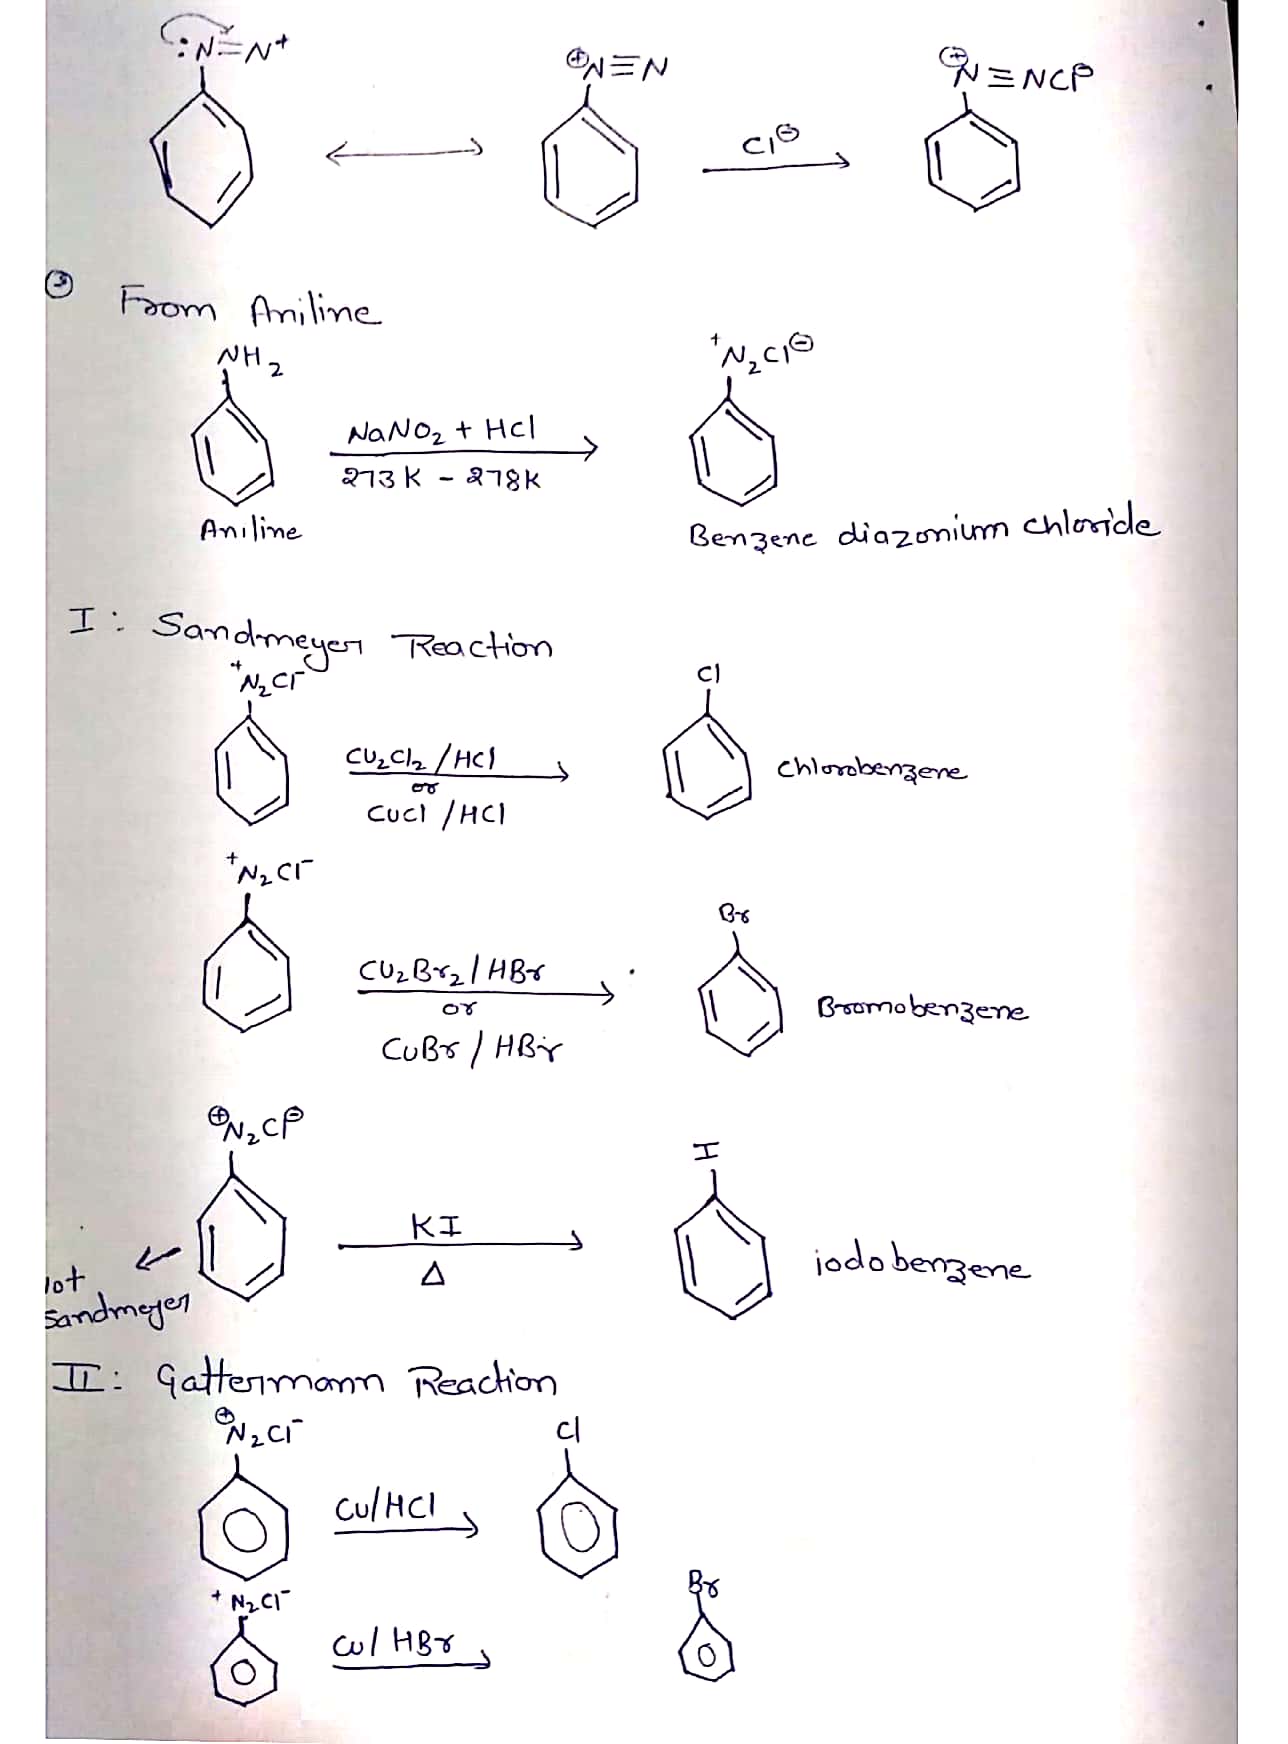 :N=N⁺
⊕N≡N
⊕N≡NCl⊖
Cl⊖
③ From Aniline
NH₂
⁺N₂Cl⊖
NaNO₂ + HCl
273K - 278K
Aniline
Benzene diazonium chloride
I: Sandmeyer Reaction
⁺N₂Cl⁻
Cl
Cu₂Cl₂ / HCl
or
CuCl / HCl
Chlorobenzene
⁺N₂Cl⁻
Br
Cu₂Br₂ / HBr
or
CuBr / HBr
Bromobenzene
⊕N₂Cl⊖
I
KI
Δ
iodobenzene
lot
Sandmeyer
II: Gattermann Reaction
⊕N₂Cl⁻
Cl
Cu/HCl
⁺N₂Cl⁻
Br
Cu/ HBr